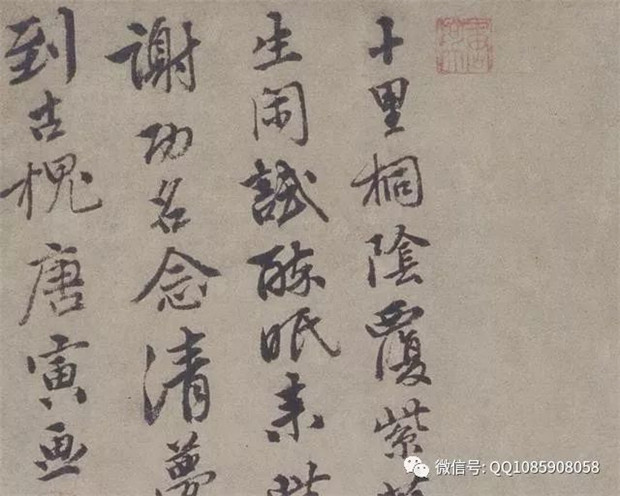 十里桐陰覆紫
生閑試醉眠来此
謝功名念清夢
到古槐唐寅画
微信号: QQ1085908058